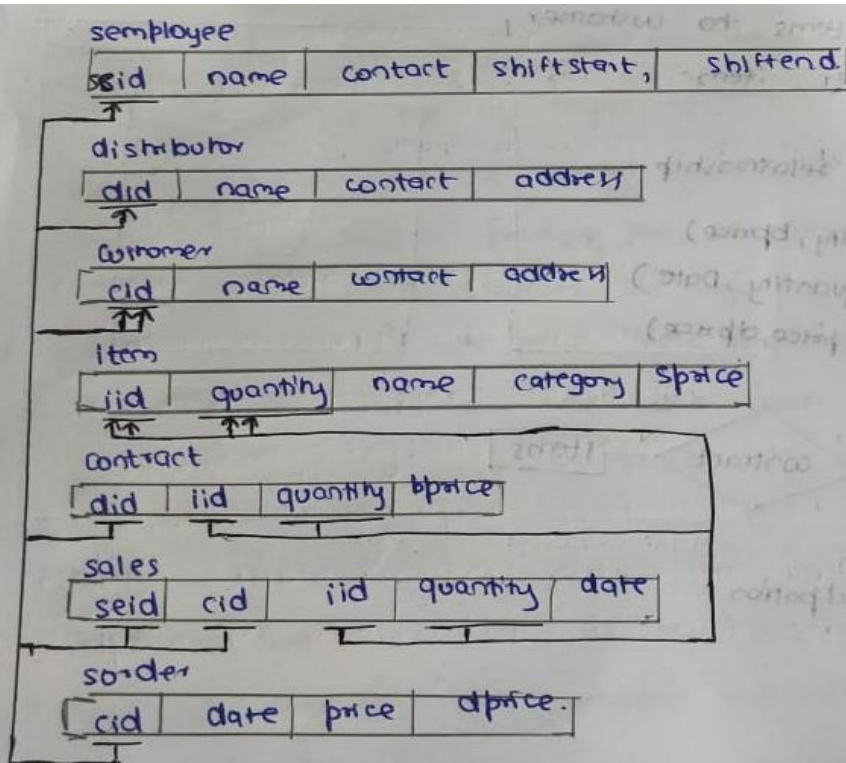 semployee
seid name contact shiftstart, shiftend.
distributor
did name contact address
customer
cid name contact address
item
iid quantity name category sprice
contract
did iid quantity bprice
sales
seid cid iid quantity date
sorder
cid date price dprice.